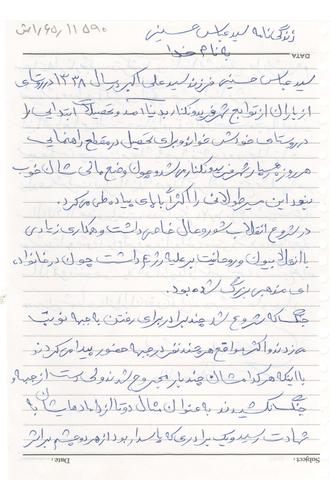 ۱۱۵۹۰ / ۶۵ / ش
زندگی نامه سید عباس حسینی
به نام خدا
DATA
سید عباس حسینی فرزند سید علی اکبر در سال ۱۳۳۸ در روستای
ازباران از توابع شهر فریدونکنار بدنیا آمد و تحصیلات ابتدایی را
در روستای خودش خواند و برای تحصیل در مقطع راهنمایی
هر روز به شهر فریدونکنار می رفت و چون وضع مالی شان خوب
نبود این مسیر طولانی را اکثراً با پای پیاده طی می کرد.
در شروع انقلاب شور و حال خاصی داشت و همکاری زیادی
با انقلابیون و روحانیت بر علیه رژیم داشت چون در خانواده
ای مذهبی بزرگ شده بود.
جنگ که شروع شد چند برادر برای رفتن به جبهه نوبت
می زدند و اکثر مواقع هر چند نفر در جبهه حضور پیدا می کردند
با اینکه هر کدامشان چند بار مجروح شدند ولی دست از جبهه و
جنگ نکشیدند به عنوان مثال دو تا از دامادهایشان به
شهادت رسید و یک برادری که پاسدار بود از هر دو چشم بر اثر
Subject:
Date: